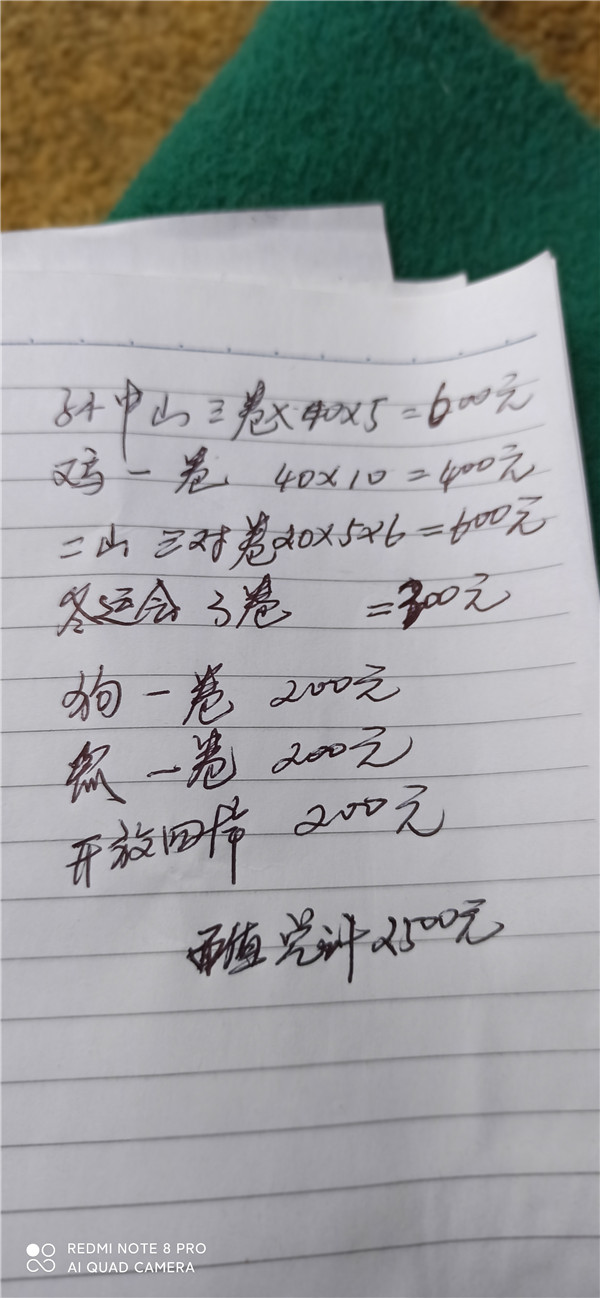 孙中山三卷×40×5=600元
鸡一卷 40×10=400元
二山三对卷20×5×6=600元
冬运会3卷 =300元
狗一卷 200元
鼠一卷 200元
开放四十 200元
面值总计2500元
REDMI NOTE 8 PRO
AI QUAD CAMERA